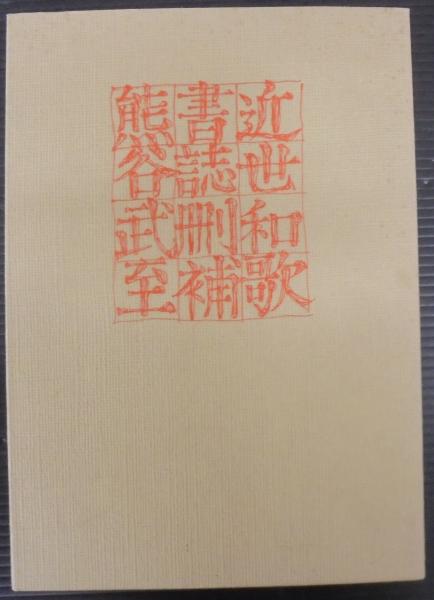 近世和歌
書誌刪補
熊谷武至